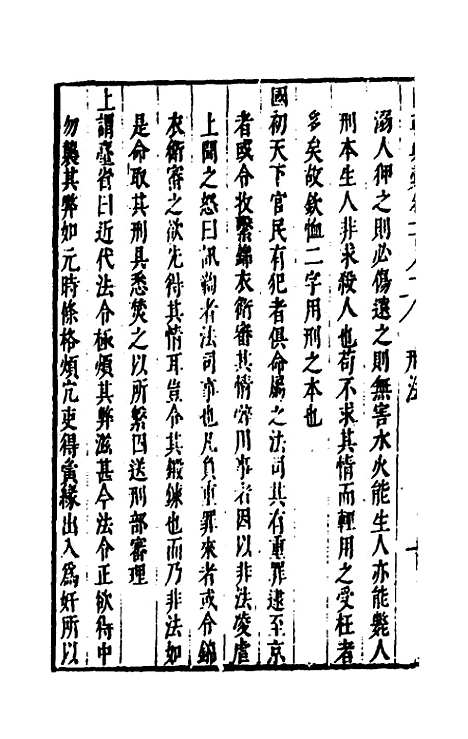 刑法
溺人狎之則必傷遠之則無害水火能生人亦能斃人
刑本生人非求殺人也苟不求其情而輕用之受枉者
多矣故欽恤二字用刑之本也
國初天下官民有犯者俱命屬之法司其有重罪逮至京
者或令收繫錦衣衛審其情辭用事者因以非法凌虐
上聞之怒曰訊鞫者法司事也凡負重罪來者或令錦
衣衛審之欲先得其情耳豈令其鍛鍊也而乃非法如
是命取其刑具悉焚之以所繫囚送刑部審理
上謂臺省曰近代法令極煩其弊滋甚今法令正欲得中
勿襲其弊如元時條格煩冗吏得夤緣出入為奸所以